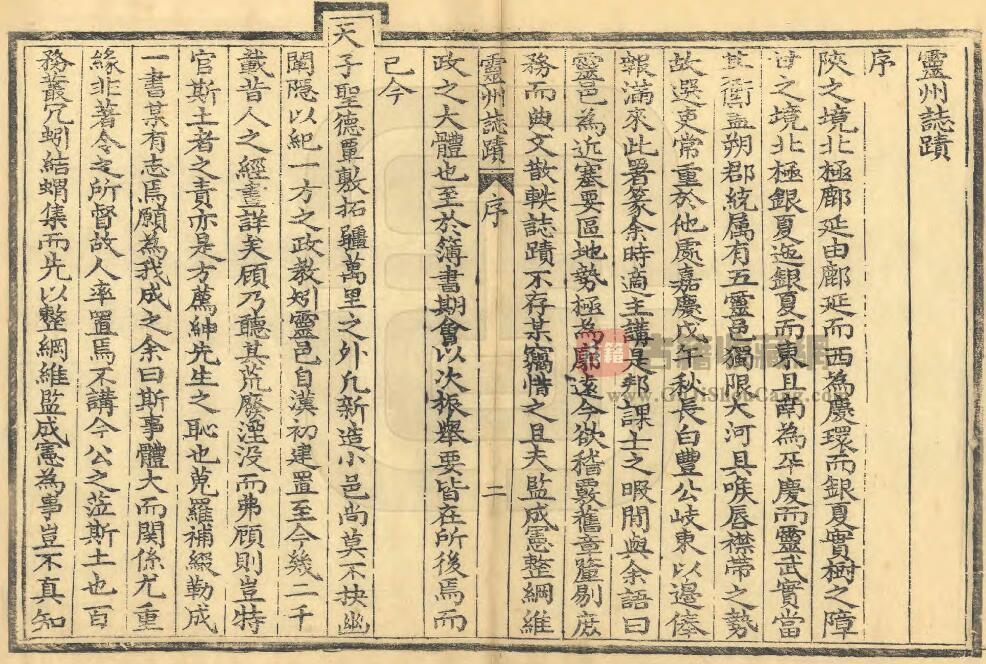 靈州誌蹟
序
陝之境北極鄜延由鄜延而西為慶環而銀夏實樹之障
甘之境北極銀夏迤銀夏而東且南為平慶而靈武實當
其衝葢朔郡統属有五靈邑獨限大河具喉唇襟帶之勢
故選吏常重於他處嘉慶戊午秋長白豐公岐東以邊俸
報滿來此署篆余時適主講是邦課士之暇間與余語曰
靈邑為近塞要區地勢極為廓遠今欲稽覈舊章釐剔庶
務而典文散軼誌蹟不存某竊惜之且夫監成憲整綱維
靈州誌蹟 序 二
政之大體也至於簿書期會以次振舉要皆在所後焉而
已今
天子聖德覃敷拓疆萬里之外凡新造小邑尚莫不抉幽
闡隐以紀一方之政教矧靈邑自漢初建置至今幾二千
載昔人之經畫詳矣顧乃聽其荒廢湮没而弗顧則豈特
官斯土者之責亦是方薦紳先生之恥也蒐羅補綴勒成
一書某有志焉願為我成之余曰斯事體大而関係尤重
緣非著令之所督故人率置焉不講今公之蒞斯土也百
務叢冗蚓結蝟集而先以整綱維監成憲為事豈不真知
古籍收藏網
www.GuJiShouCang.com